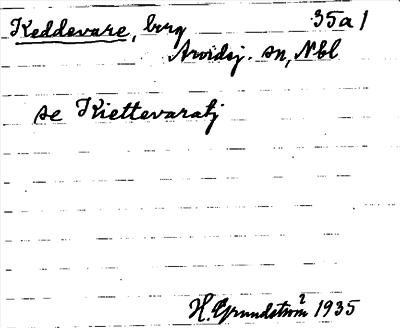 Keddevare, berg 35a1
Arvidsj. sn, Nbl
se Kiettevaratj
H. Grundström 1935